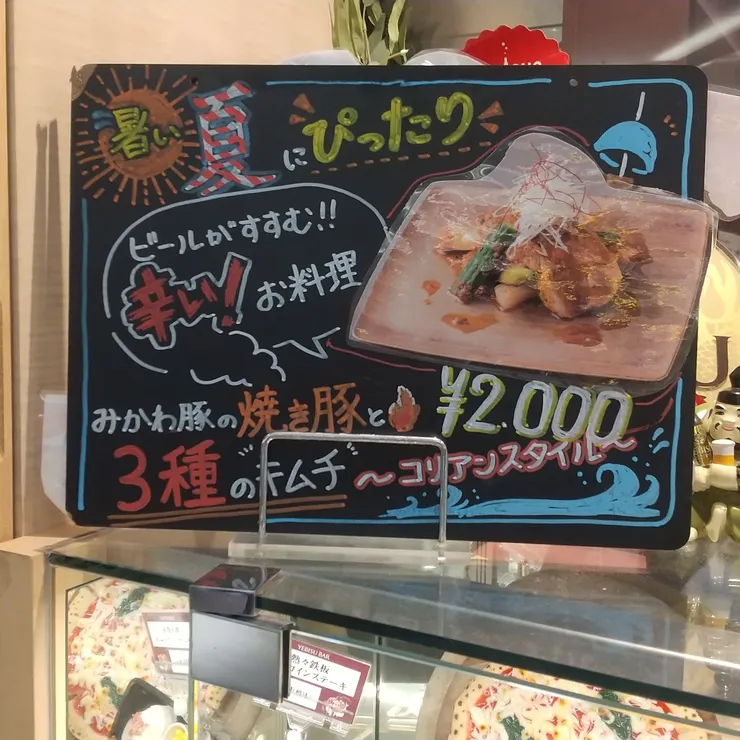 暑い夏にぴったり
ビールがすすむ!!
辛い!お料理
みかわ豚の焼き豚と
¥2.000
3種のキムチ
～コリアンスタイル～
YEBISU BAR